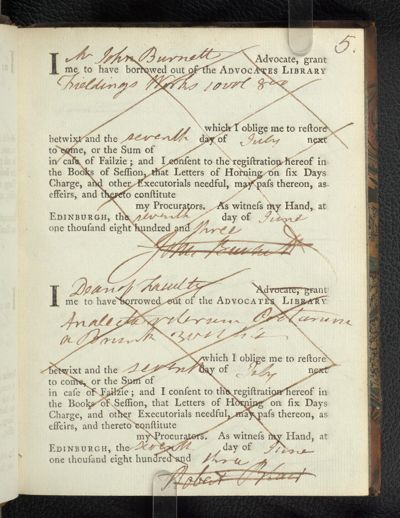 5.
I Mr John Burnett Advocate, grant
me to have borrowed out of the ADVOCATES LIBRARY
Fieldings Works 10 vol 8vo
which I oblige me to reſtore
betwixt and the seventh day of July next
to come, or the Sum of
in caſe of Failzie; and I conſent to the regiſtration hereof in
the Books of Seſſion, that Letters of Horning on ſix Days
Charge, and other Executorials needful, may paſs thereon, as
effeirs, and thereto conſtitute
my Procurators. As witneſs my Hand, at
EDINBURGH, the seventh day of June
one thouſand eight hundred and three
John Burnett
I Dean of Faculty Advocate, grant
me to have borrowed out of the ADVOCATES LIBRARY
Analecta veterum Poetarum
a Brunk 3 vol
which I oblige me to reſtore
betwixt and the seventh day of July next
to come, or the Sum of
in caſe of Failzie; and I conſent to the regiſtration hereof in
the Books of Seſſion, that Letters of Horning on ſix Days
Charge, and other Executorials needful, may paſs thereon, as
effeirs, and thereto conſtitute
my Procurators. As witneſs my Hand, at
EDINBURGH, the seventh day of June
one thouſand eight hundred and three
Robert Blair